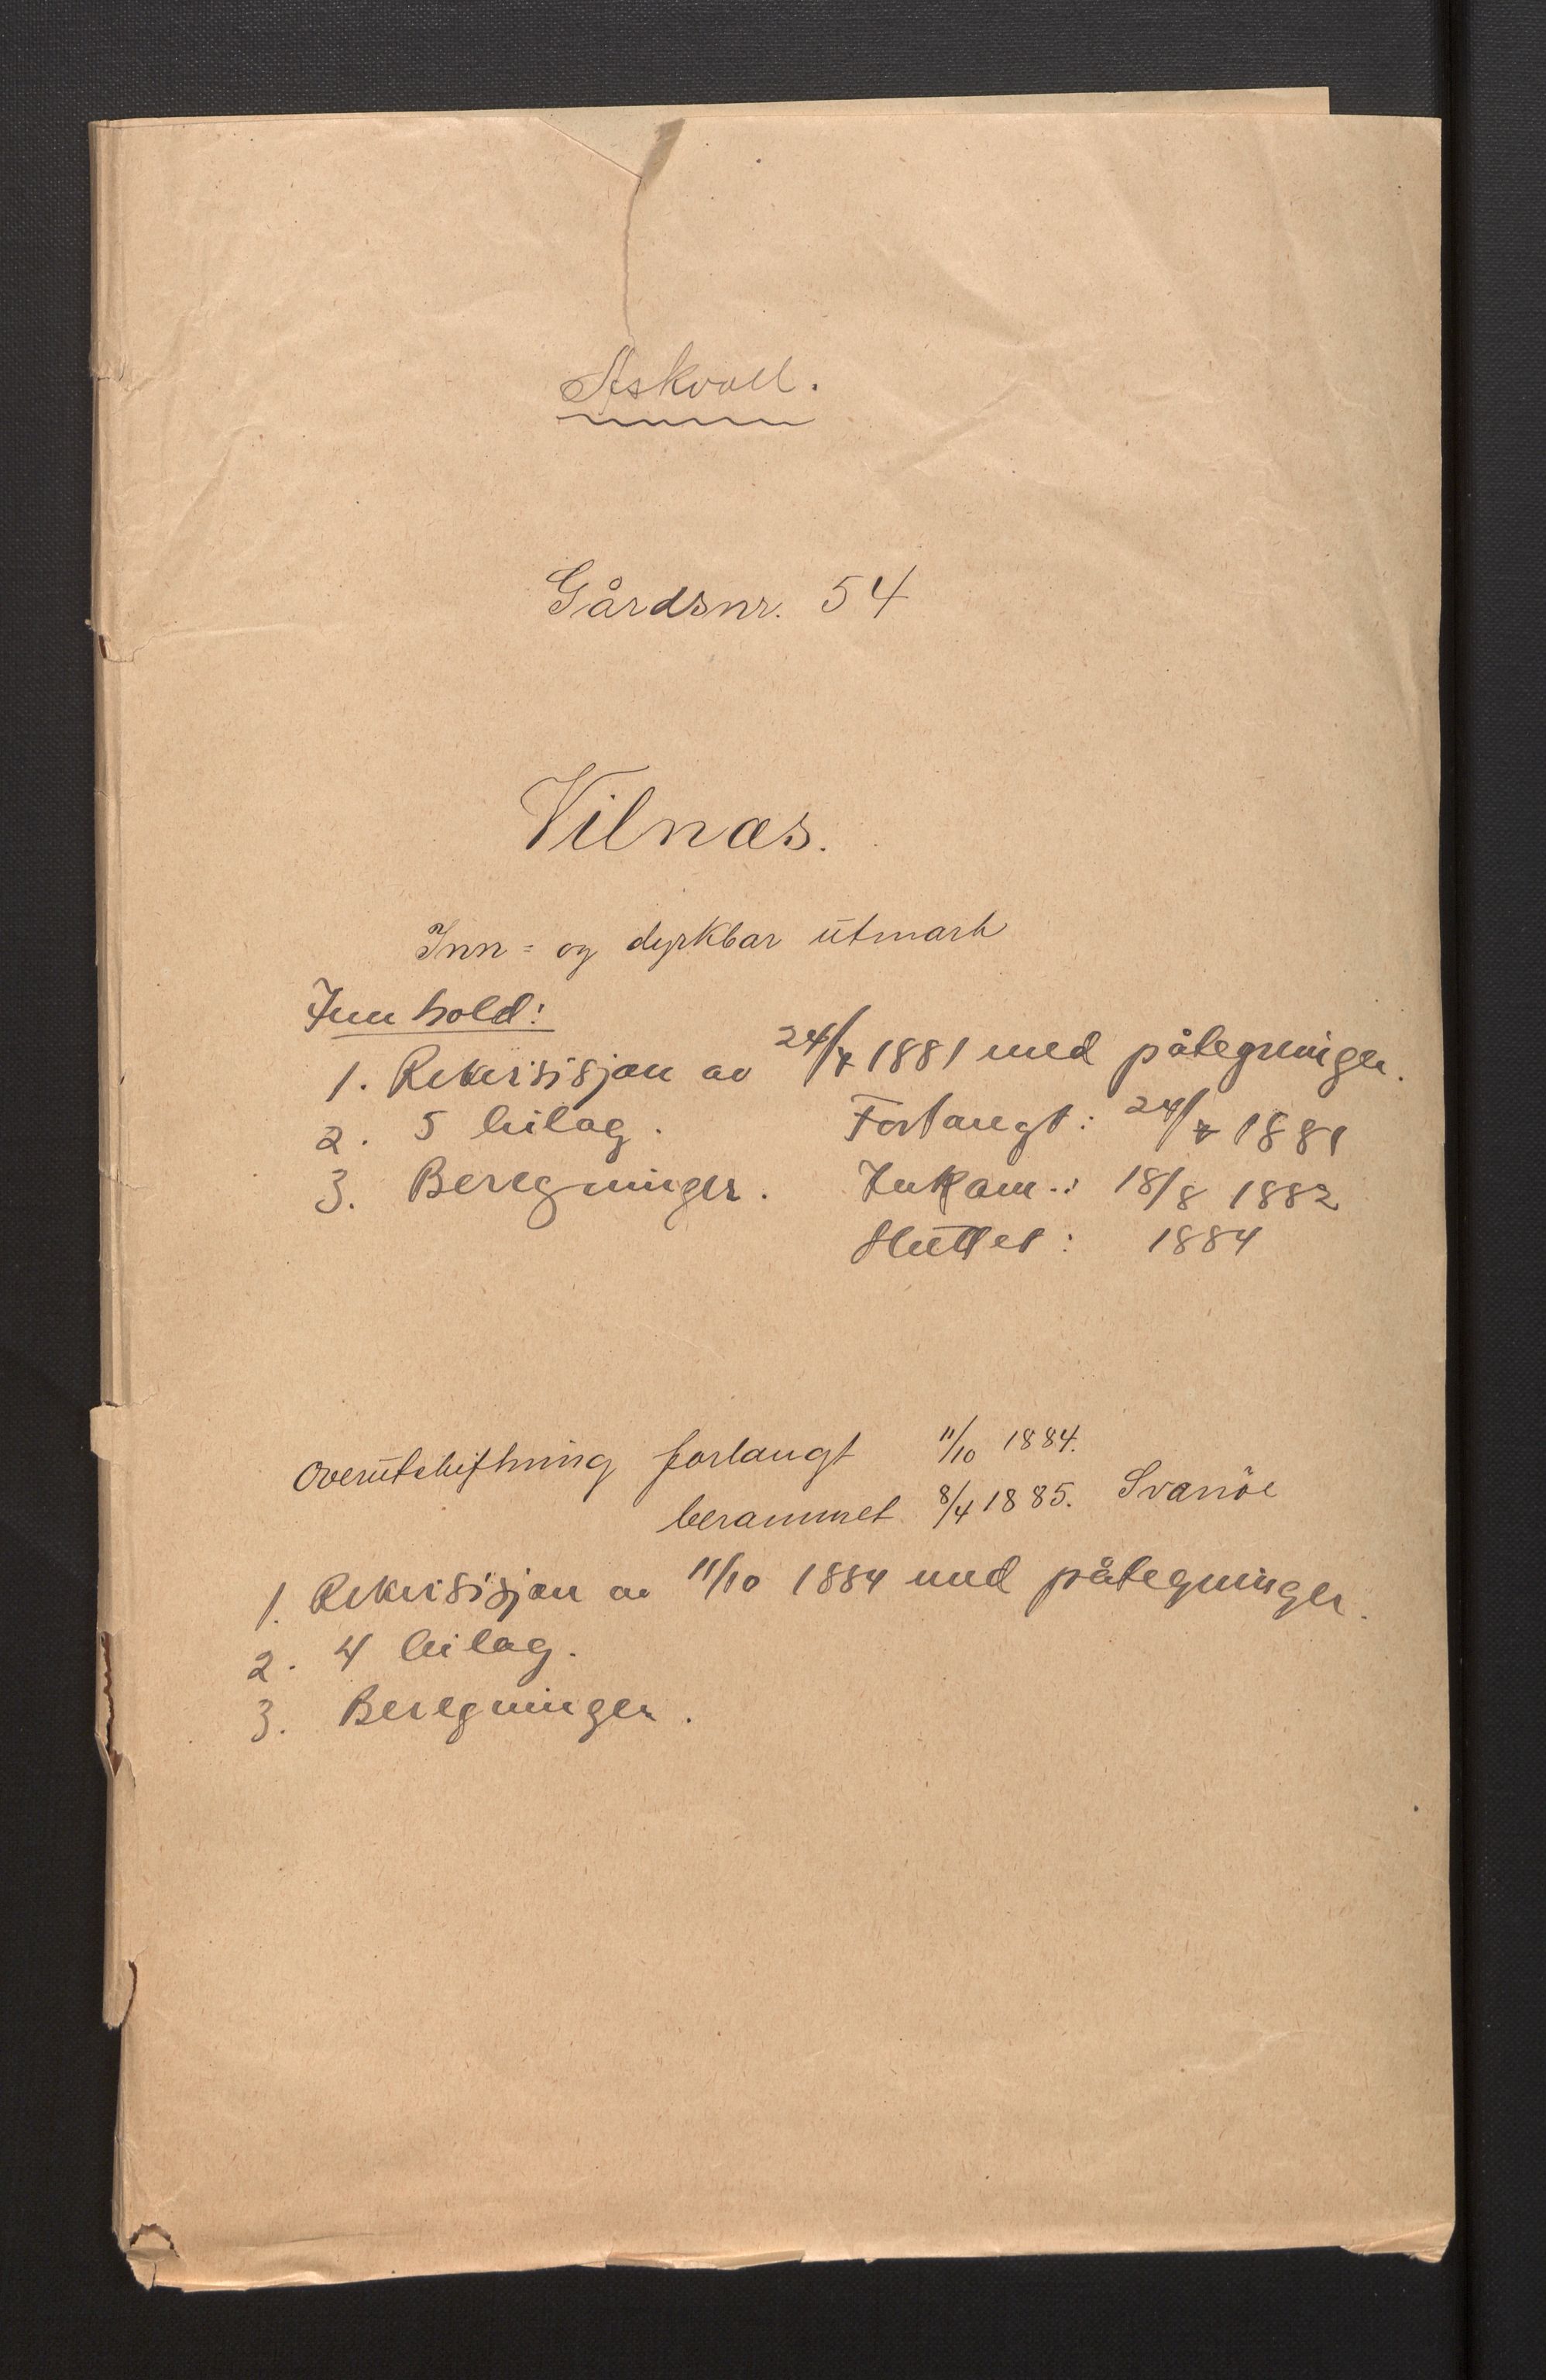 Askvoll.
Gårdsnr. 54
Vilnæs.
Inn- og dyrkbar utmark
Innhold:
1. Rekvisisjon av 24/7 1881 med påtegninger.
2. 5 bilag. Forlangt: 24/7 1881
3. Beregninger. Inkam.: 18/8 1882
Sluttet: 1884
Overutskiftning forlangt 11/10 1884.
berammet 8/4 1885. Svanöe
1. Rekvisisjon av 11/10 1884 med påtegninger.
2. 4 bilag.
3. Beregninger.